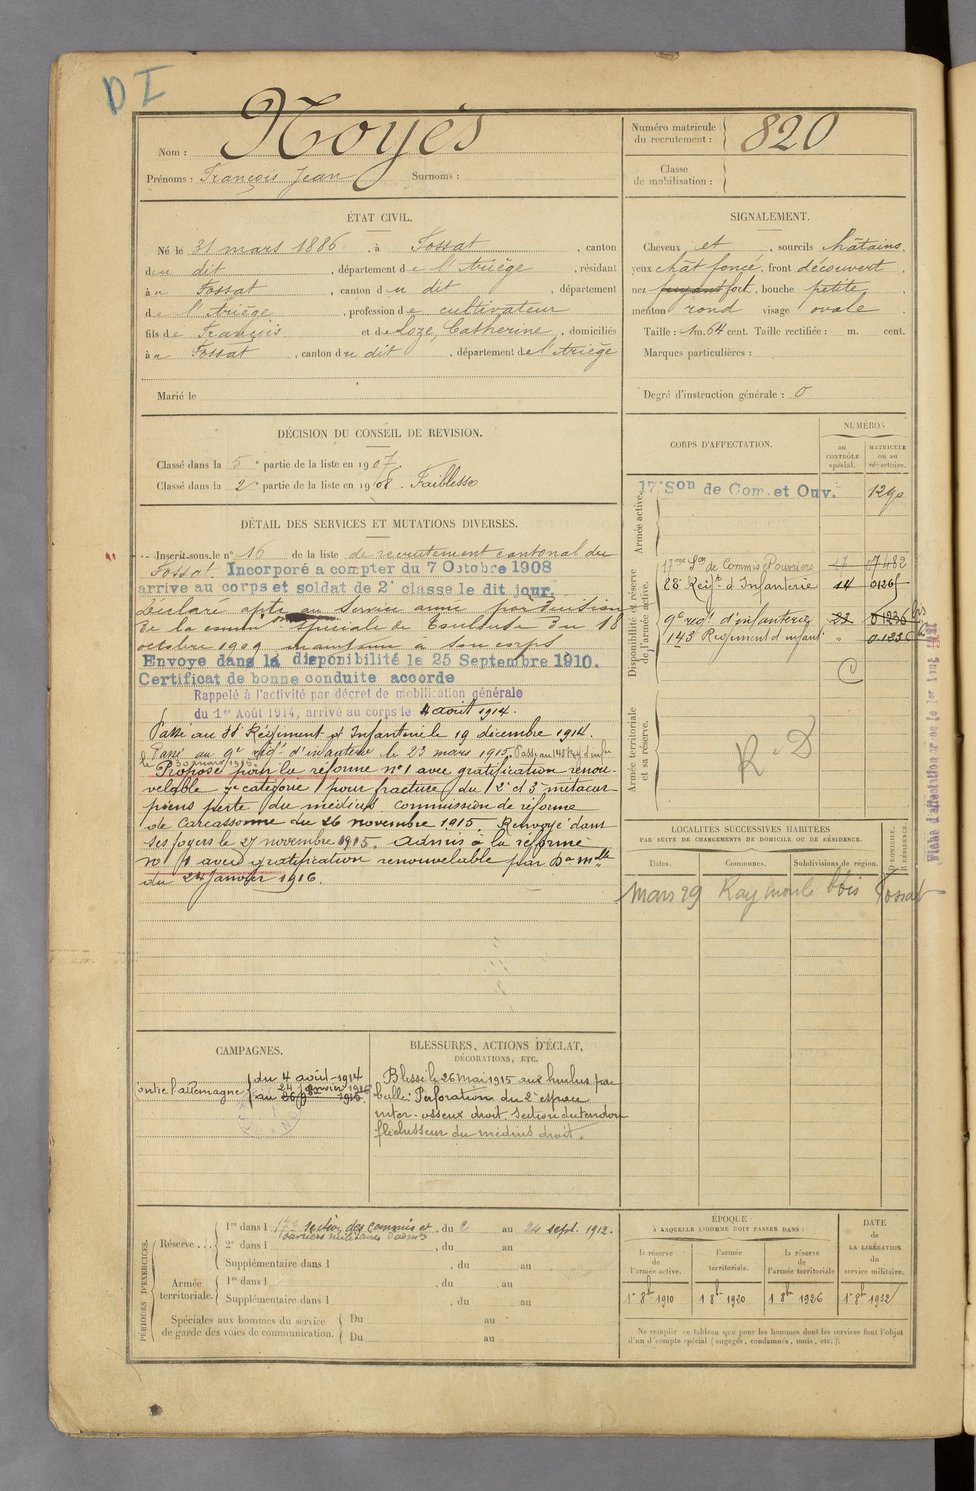 D I
Nom : Noyès
Prénoms : François Jean Surnoms :
Numéro matricule du recrutement : 820
Classe de mobilisation :
ÉTAT CIVIL.
Né le 31 mars 1886, à Fossat, canton
du dit, département de l'Ariège, résidant
à Fossat, canton du dit, département
de l'Ariège, profession de cultivateur
fils de François et de Loze, Catherine, domiciliés
à Fossat, canton du dit, département de l'Ariège
Marié le
SIGNALEMENT.
Cheveux et, sourcils châtains.
yeux chât foncé, front découvert
nez fuyant fort, bouche petite,
menton rond visage ovale
Taille : 1m. 64 cent. Taille rectifiée : m. cent.
Marques particulières :
Degré d'instruction générale : 0
DÉCISION DU CONSEIL DE REVISION.
Classé dans la 5e partie de la liste en 1907
Classé dans la 2e partie de la liste en 1908. Faiblesse
DÉTAIL DES SERVICES ET MUTATIONS DIVERSES.
Inscrit sous le n° 16 de la liste de recrutement cantonal du
Fossat. Incorporé a compter du 7 Octobre 1908
arrive au corps et soldat de 2e classe le dit jour.
Déclaré apte au service armé par décision
de la comm on spéciale de Toulouse du 18
octobre 1909 maintenu à son corps
Envoye dans la disponibilité le 25 Septembre 1910.
Certificat de bonne conduite accorde
Rappelé à l'activité par décret de mobilisation générale
du 1er Août 1914, arrivé au corps le 4 août 1914.
Passé au 88 Régiment d'Infanterie le 19 décembre 1914.
Passé au 9e régt d'infanterie le 23 mars 1915. Passé au 143 Reg d'infie
le 30 mars 1915.
Proposé pour la réforme n°1 avec gratification renou-
velable 7e catégorie pour fracture du 2e et 3e métacar-
piens perte du médius commission de réforme
de Carcassonne du 26 novembre 1915. Renvoyé dans
ses foyers le 27 novembre 1915. Admis à la réforme
n° 1 avec gratification renouvelable par Don mlle
du 24 Janvier 1916.
CORPS D'AFFECTATION.
NUMÉROS
au CONTRÔLE spécial.
MATRICULE ou au répertoire.
Armée active.
17e Son de Com. et Ouv. 1290
Disponibilité et réserve de l'armée active.
17me Son de Commis & Ouvriers 17 07482
88e Reg.t d'Infanterie 14 01265
9e reg.t d'infanterie 22 01236 bis
143 Regiment d'infant. " 01236
C
Armée territoriale et sa réserve.
R D
Fiche d'affectation
LOCALITÉS SUCCESSIVES HABITÉES
PAR SUITE DE CHANGEMENTS DE DOMICILE OU DE RÉSIDENCE.
Dates. Communes. Subdivisions de région. D DOMICILE. R RÉSIDENCE.
Mars 29 Fossat
CAMPAGNES.
Contre l'allemagne du 4 août 1914
24 janvier 1916
au 26 9bre 1915.
BLESSURES, ACTIONS D'ÉCLAT,
DÉCORATIONS, ETC.
Blessé le 26 Mai 1915 aux par
balle : Perforation du 2e espace
inter-osseux droit. Section du tendon
fléchisseur du médius droit.
PÉRIODES D'EXERCICES.
Réserve... 1re dans l 17e section des commis et, du 2 au 24 sept. 1912.
ouvriers militaires d'admon
2e dans l , du au
Supplémentaire dans l , du au
Armée territoriale. 1re dans l , du au
Supplémentaire dans l , du au
Spéciales aux hommes du service de garde des voies de communication. Du au
Du au
ÉPOQUE
À LAQUELLE L'HOMME DOIT PASSER DANS :
la réserve de l'armée active. l'armée territoriale. la réserve de l'armée territoriale
DATE de LA LIBÉRATION du service militaire.
1er 8bre 1910 1 8bre 1920 1 8bre 1926 1er 8bre 1932
Ne remplir ce tableau que pour les hommes dont les services font l'objet
d'un décompte spécial (engagés, condamnés, omis, etc.).